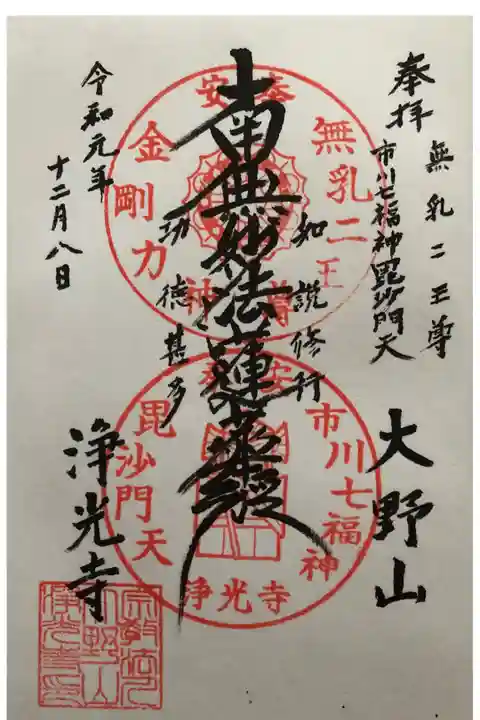 奉拝
無乳二王尊
市川七福神毘沙門天
大野山
如説修行
南無妙法蓮華経
功徳甚多
令和元年
十二月八日
浄光寺
奉安
無乳二王尊
金剛力神
奉安
市川七福神
毘沙門天
浄光寺